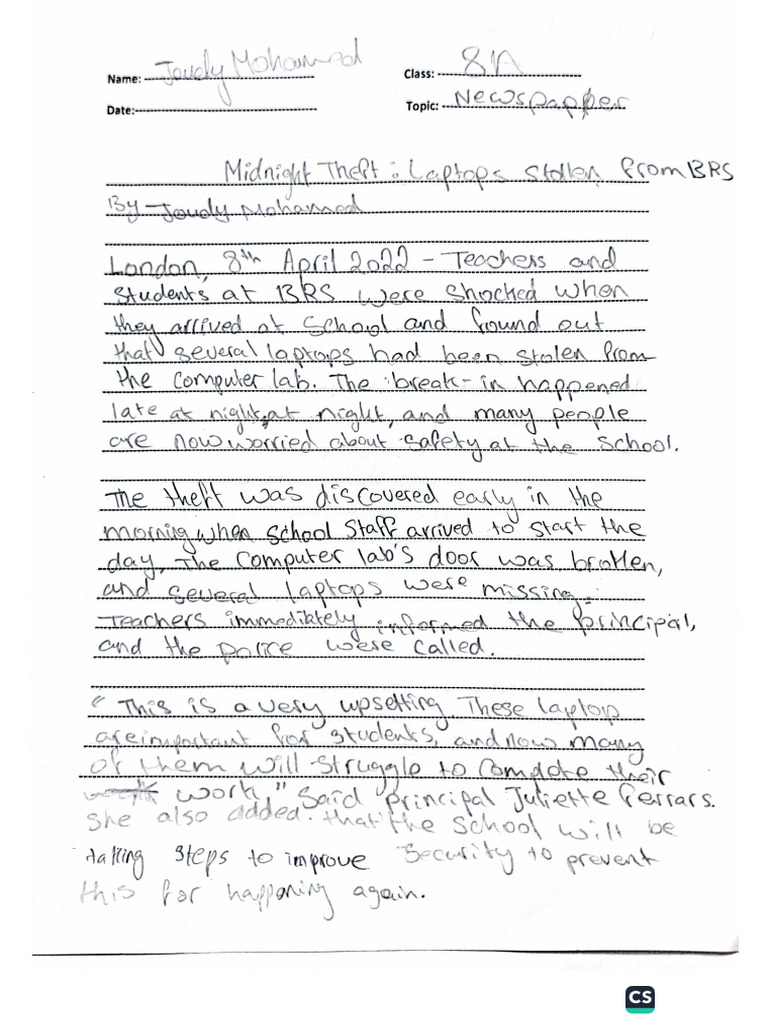 Name: Joudy Mohamed
Class: 8A
Date:
Topic: Newspapper
Midnight Theft: Laptops Stollen from BRS
By Joudy Mohamed
London, 8th April 2022 - Teachers and
students at BRS were shocked when
they arrived at school and found out
that several laptops had been stolen from
the computer lab. The break-in happened
late at night, at night, and many people
are now worried about safety at the school.
The theft was discovered early in the
morning when school staff arrived to start the
day. The computer lab's door was broken,
and several laptops were missing.
Teachers immediately informed the principal,
and the police were called.
"This is a very upsetting. These laptop
are important for students, and now many
of them will struggle to complete their
work," said principal Juliette Ferrars.
She also added. that the school will be
taking steps to improve security to prevent
this for happoning again.
CS